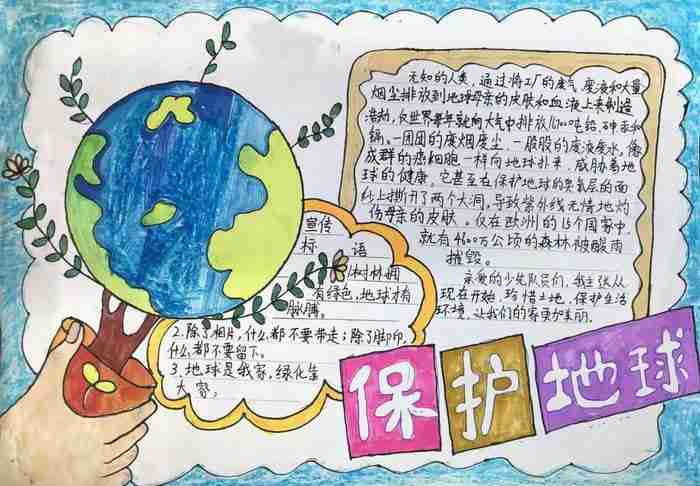 无知的人类,通过将工厂的废气、废液和大量
烟尘排放到地球母亲的皮肤和血液上来制造
浩劫,仅世界每年就向大气中排放 吨铅、砷、汞和
镉。一团团的废烟废尘,一股股的废液废水,像
成群的癌细胞一样向地球扑来,威胁着地
球的健康。它甚至在保护地球的臭氧层的面
纱上撕开了两个大洞,导致紫外线无情地灼
伤母亲的皮肤。仅在欧洲的15个国家中,
就有4600万公顷的森林被酸雨
摧毁。
亲爱的少先队员们,我主张从
现在开始,珍惜土地,保护生活
环境,让我们的家更加美丽。
宣传
标 语
树林
有绿色,地球才有
脉膊。
2.除了相片,什么都不要带走;除了脚印,
什么都不要留下。
3.地球是我家,绿化靠
大家;
保护地球